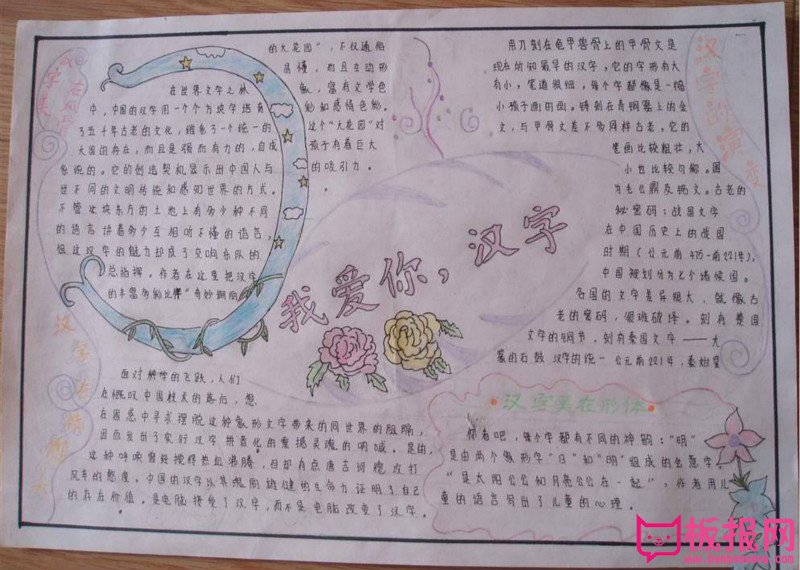 我爱你，汉字
在世界文字之林
中，中国的汉字用一个个方块字培育
了五千年古老的文化，维系了一个统一的
大国的存在，而且是强而有力的，自成
系统的。它的创造契机显示出中国人与
世不同的文明传统和感知世界的方式。
不管这块东方的土地上有多少种不同
的语言 讲着多少互相听不懂的语言，
但这汉字的魅力却成了交响乐队的
总指挥。作者在这里把汉字
的丰富多彩比作“奇妙
的大花园”，不仅通俗
易懂，而且生动形
象，富有文学色
彩和感情色彩。
这个“大花园”对
孩子有着巨大
的吸引力。
汉字的演变
用刀刻在龟甲兽骨上的甲骨文是
现在所知最早的汉字，它的字形有大
有小，笔道很细，每个字都像是一幅
小孩子画的画。铸刻在青铜器上的金
文，与甲骨文差不多同样古老。它的
笔画比较粗壮，大
小也比较匀称。图
为毛公鼎及铭文。古老的
秘密码：战国文字
在中国历史上的战国
时期（公元前475-前221年），
中国被划分为七个诸侯国。
各国的文字差异很大，就像古
老的密码，很难破译。刻有楚国
文字的铜节，刻有秦国文字——大
篆的石鼓 汉字的统一 公元前221年，秦始皇
面对科学的飞跃，人们
在慨叹中国技术的落后，想
在困惑中寻求摆脱这种象形文字带来的同世界的隔膜，
因而发出了实行汉字拼音化的震撼灵魂的呐喊。是的，
这种呼唤曾经搅得热血沸腾，但却有点唐吉诃德攻打
风车的憨度。中国的汉字以其傲岸挑健的生命力证明了自己
的存在价值。是电脑接受了汉字，而不是电脑改变了汉字。
汉字美在形体
你看吧，每个字都有不同的神韵：“明”
是由两个象形字“日”和“明”组成的会意字，
“是太阳公公和月亮公公在一起”；作者用儿
童的语言写出了儿童的心理。
板报网